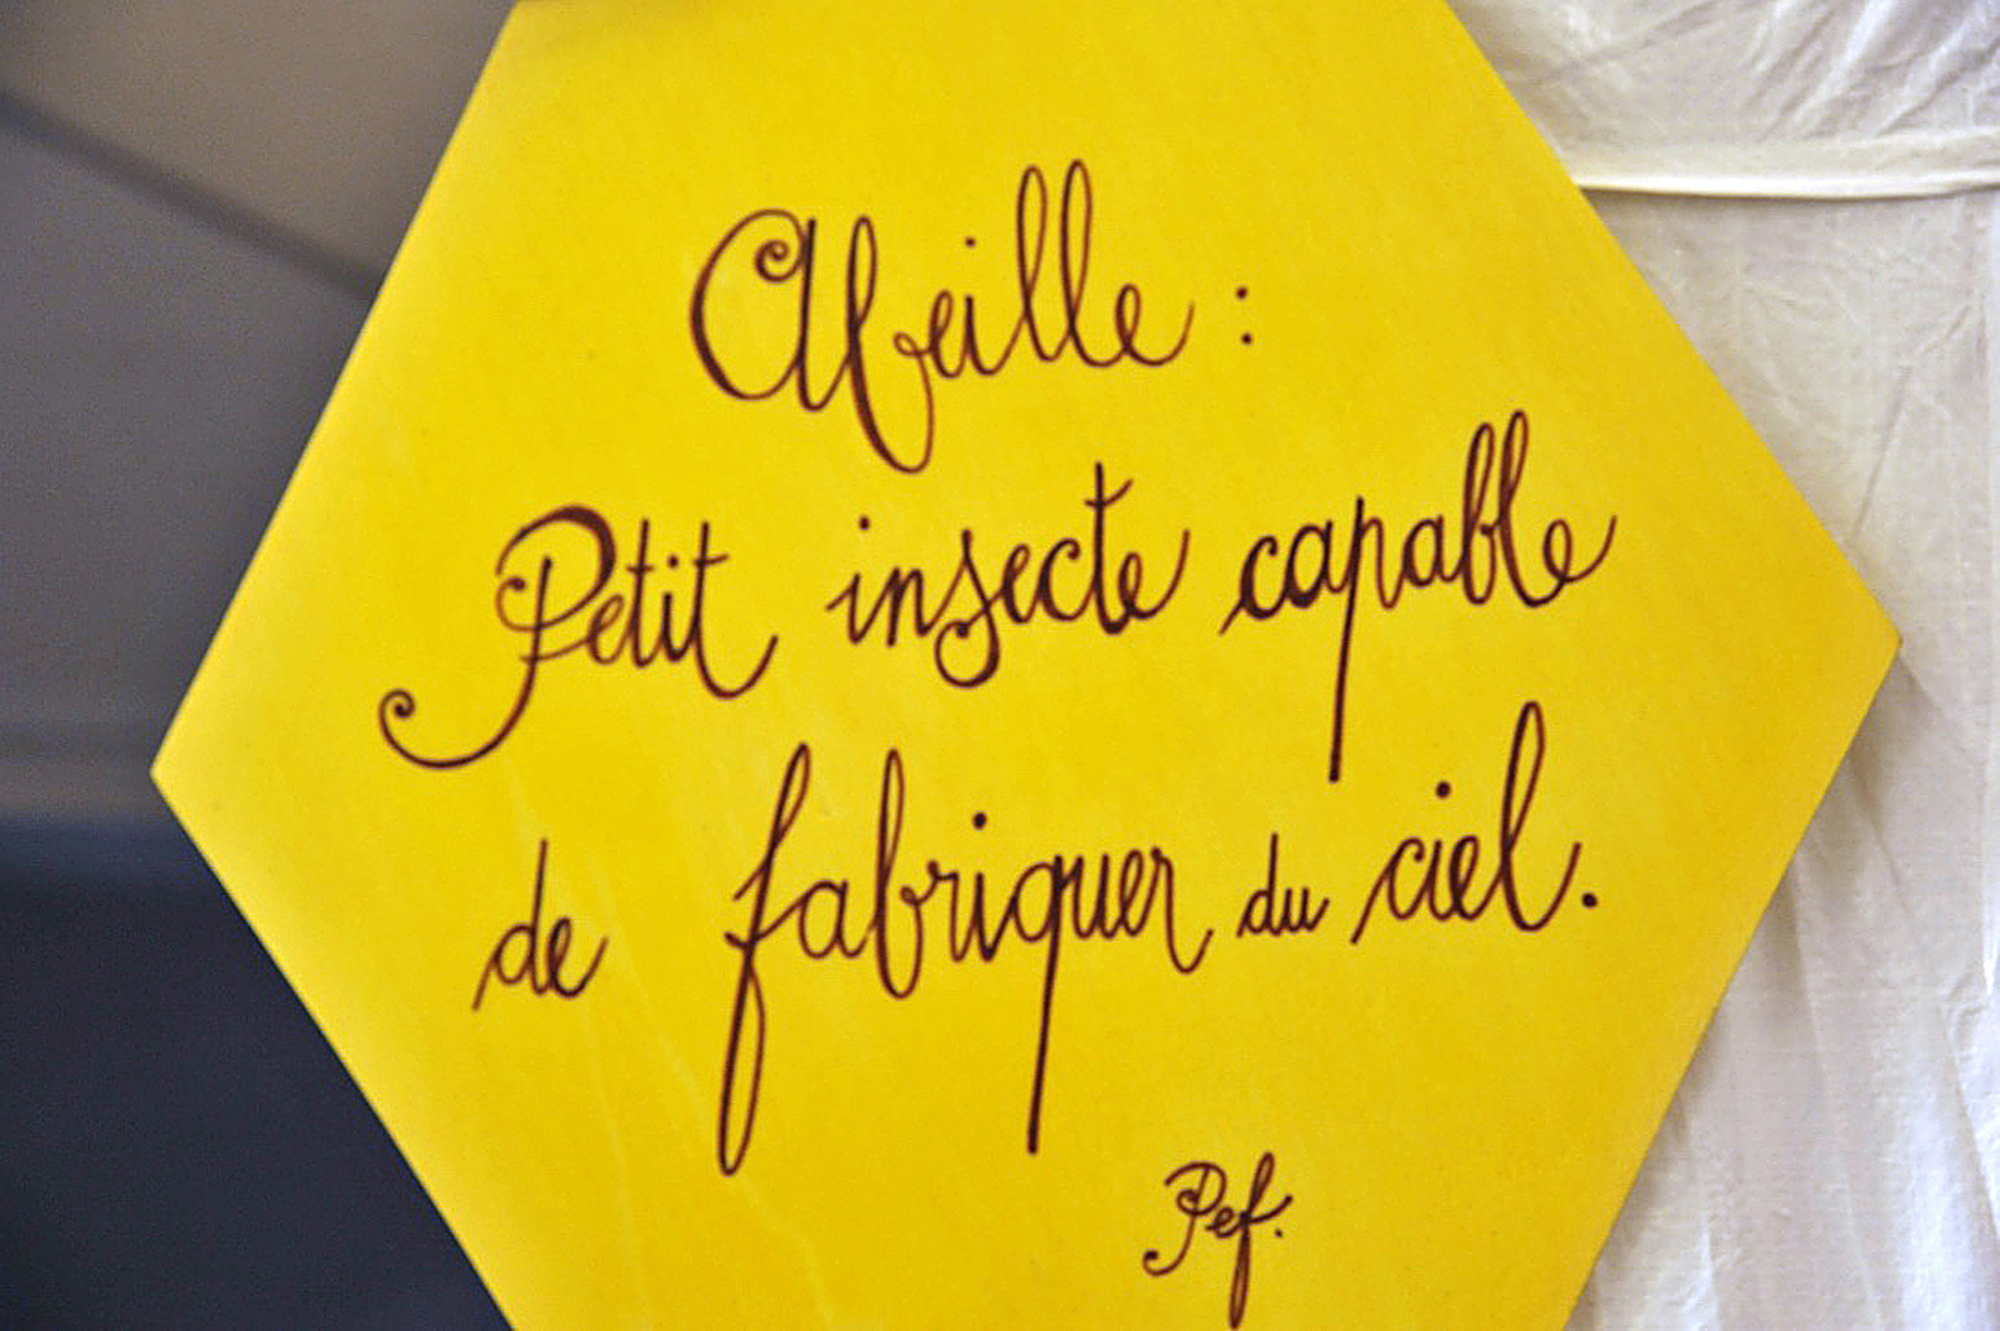 Abeille :
Petit insecte capable
de fabriquer du ciel.
Pef.